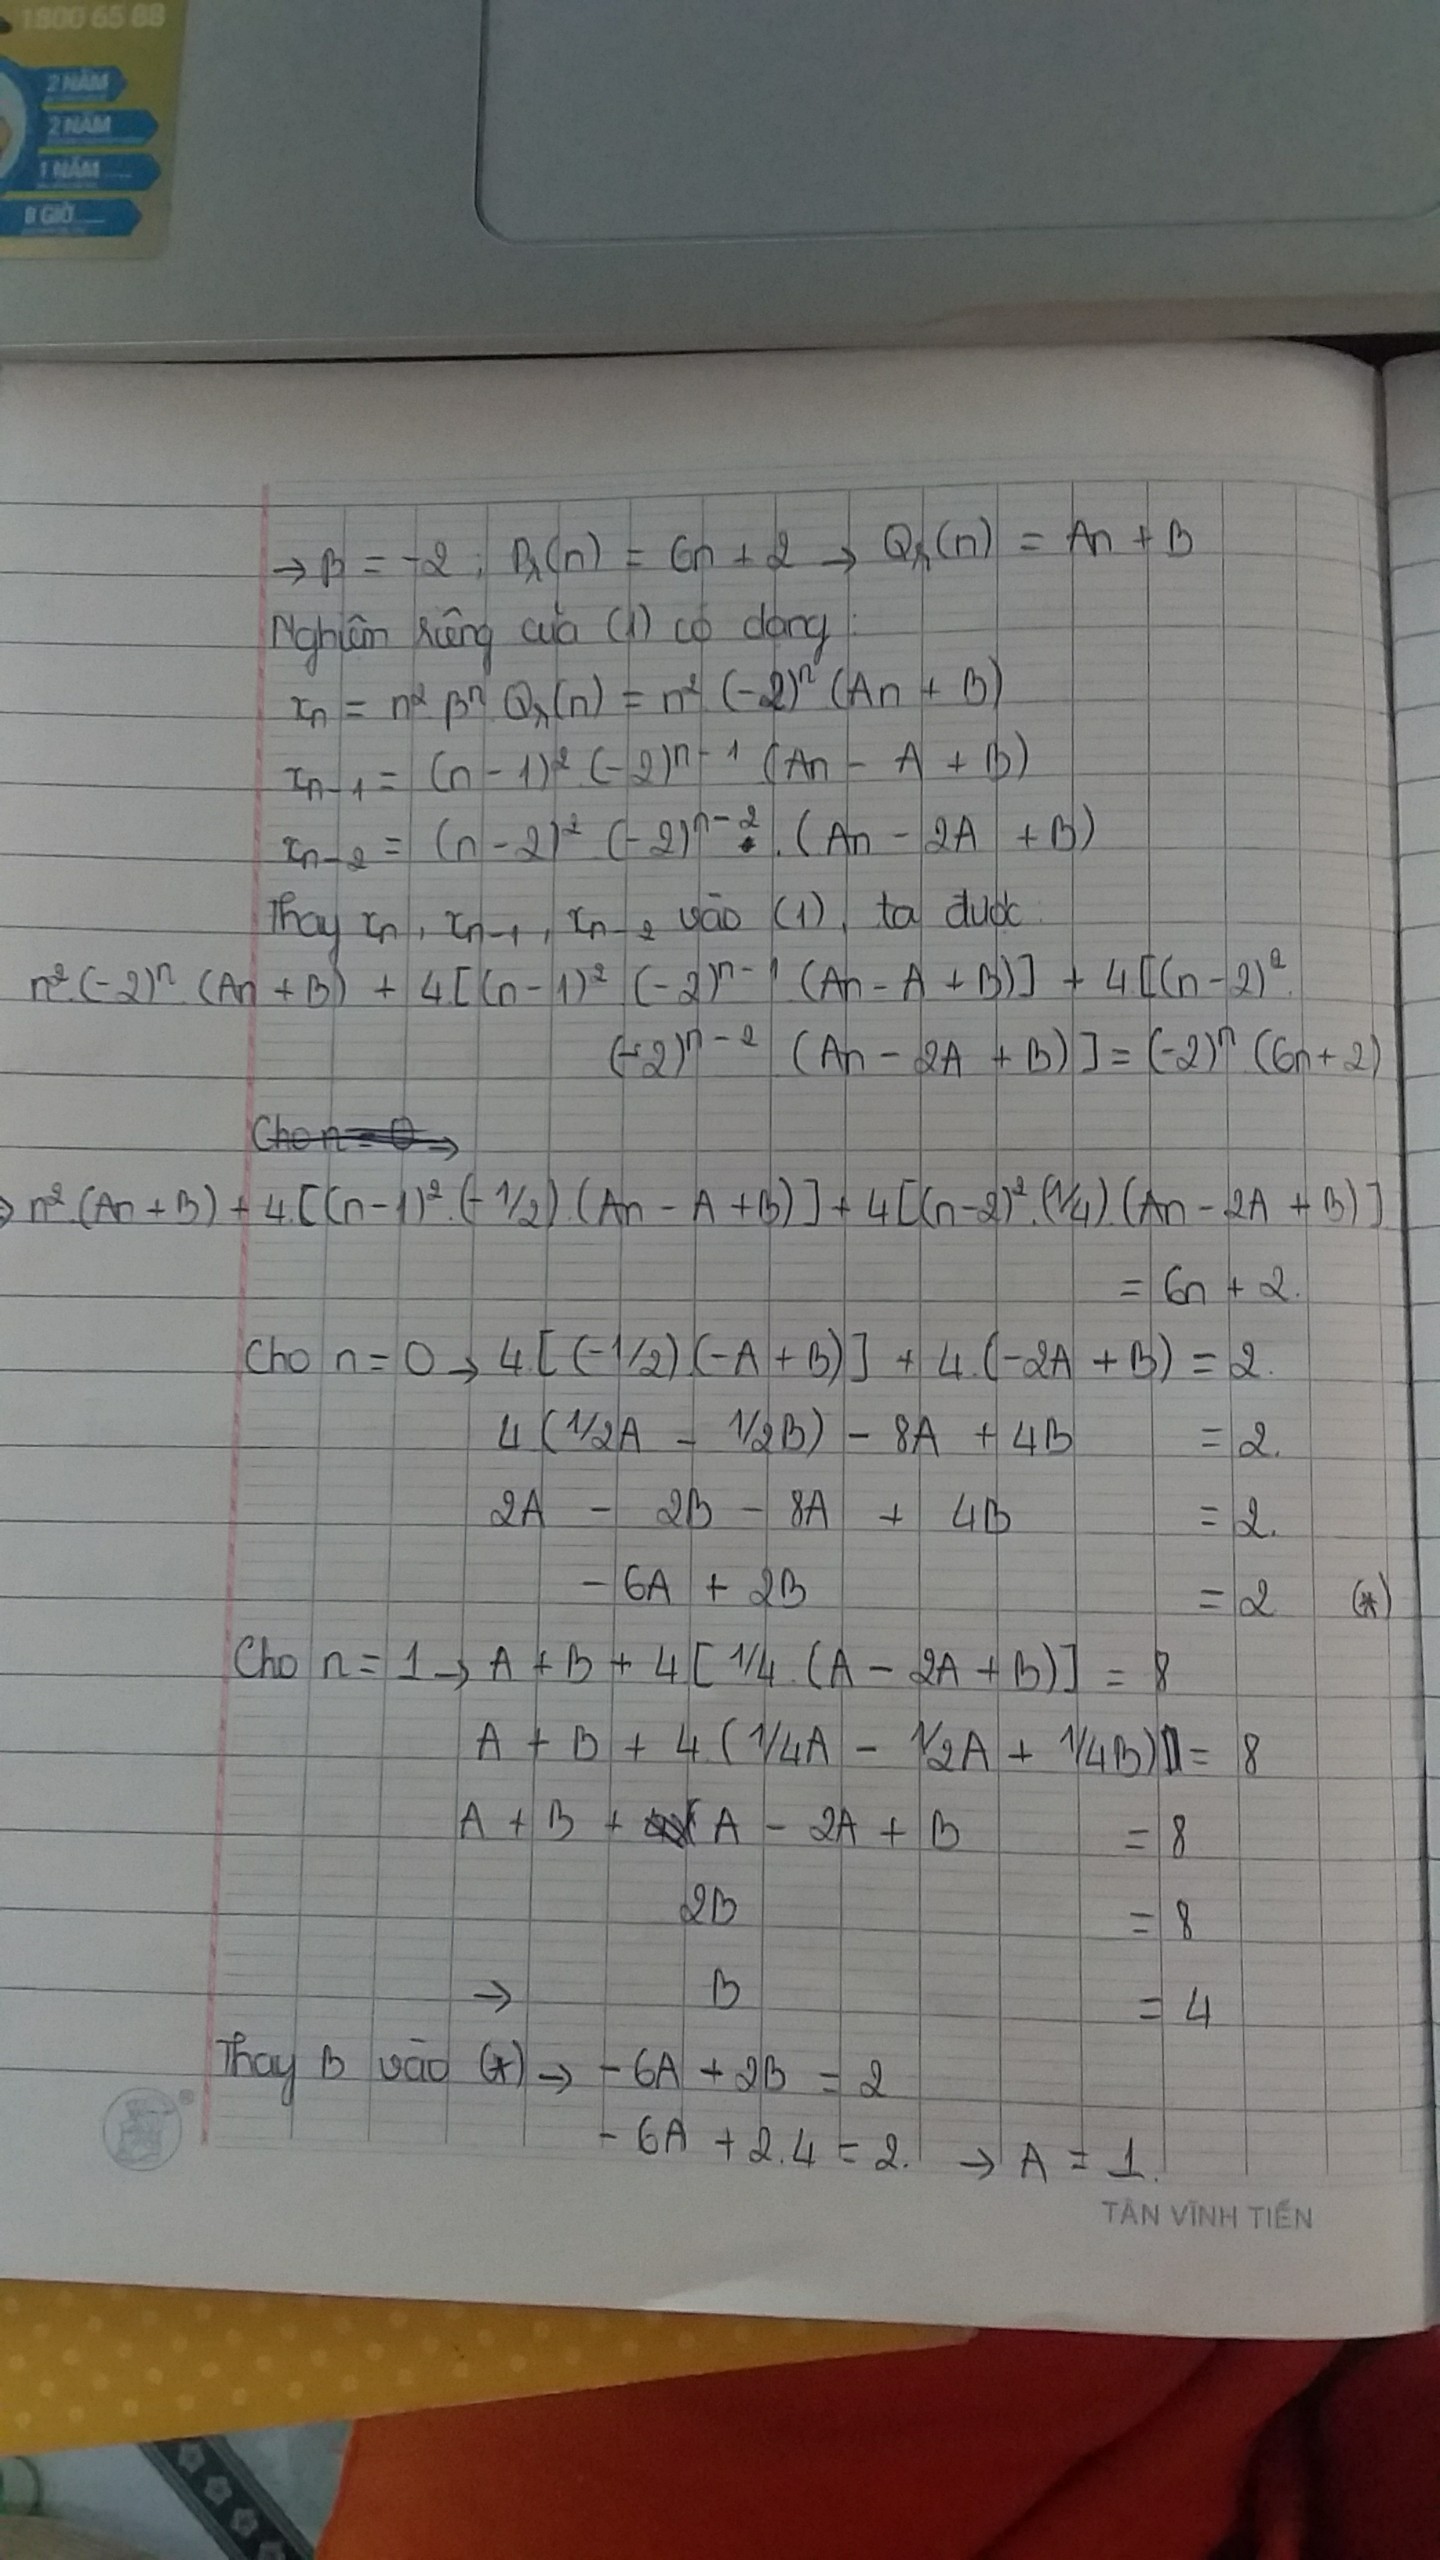 1800 65 88
2 NĂM
2 NĂM
1 NĂM
8 GIỜ
→ β = -2 ; P₁(n) = 6n + 2 → Q₁(n) = An + B
Nghiệm riêng của (1) có dạng :
xₙ = n² βⁿ Q₁(n) = n² (-2)ⁿ (An + B)
xₙ₋₁ = (n - 1)² (-2)ⁿ⁻¹ (An - A + B)
xₙ₋₂ = (n - 2)² (-2)ⁿ⁻² . (An - 2A + B)
Thay xₙ, xₙ₋₁, xₙ₋₂ vào (1), ta được
n² (-2)ⁿ (An + B) + 4 [(n - 1)² (-2)ⁿ⁻¹ (An - A + B)] + 4 [(n - 2)².
(-2)ⁿ⁻² (An - 2A + B)] = (-2)ⁿ (6n + 2)
Cho n = 0 →
⇒ n² (An + B) + 4 [(n - 1)² . (-1/2) (An - A + B)] + 4 [(n - 2)² . (1/4) (An - 2A + B)]
= 6n + 2.
Cho n = 0 → 4 [(-1/2) (-A + B)] + 4. (-2A + B) = 2.
4 (1/2A - 1/2B) - 8A + 4B = 2.
2A - 2B - 8A + 4B = 2.
-6A + 2B = 2 (*)
Cho n = 1 → A + B + 4 [1/4 . (A - 2A + B)] = 8
A + B + 4 (1/4A - 1/2A + 1/4B) = 8
A + B + A - 2A + B = 8
2B = 8
→ B = 4
Thay B vào (*) → -6A + 2B = 2
-6A + 2.4 = 2. → A = 1.
TÂN VĨNH TIẾN